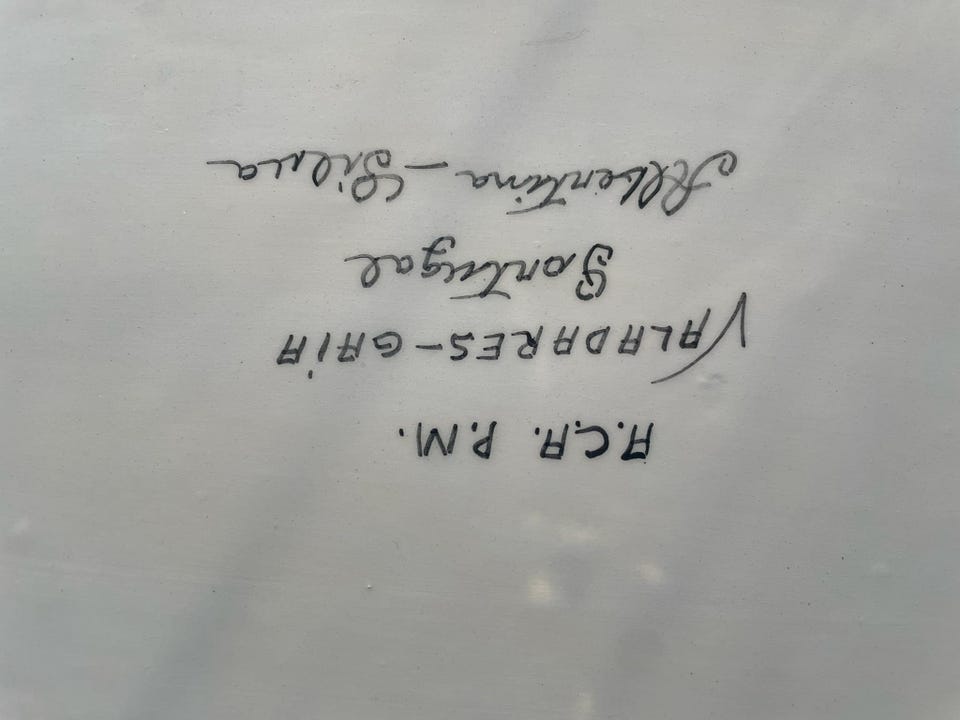 A.C.A. P.M.
VALADARES-GAiA
Portugal
Albertina - Silva